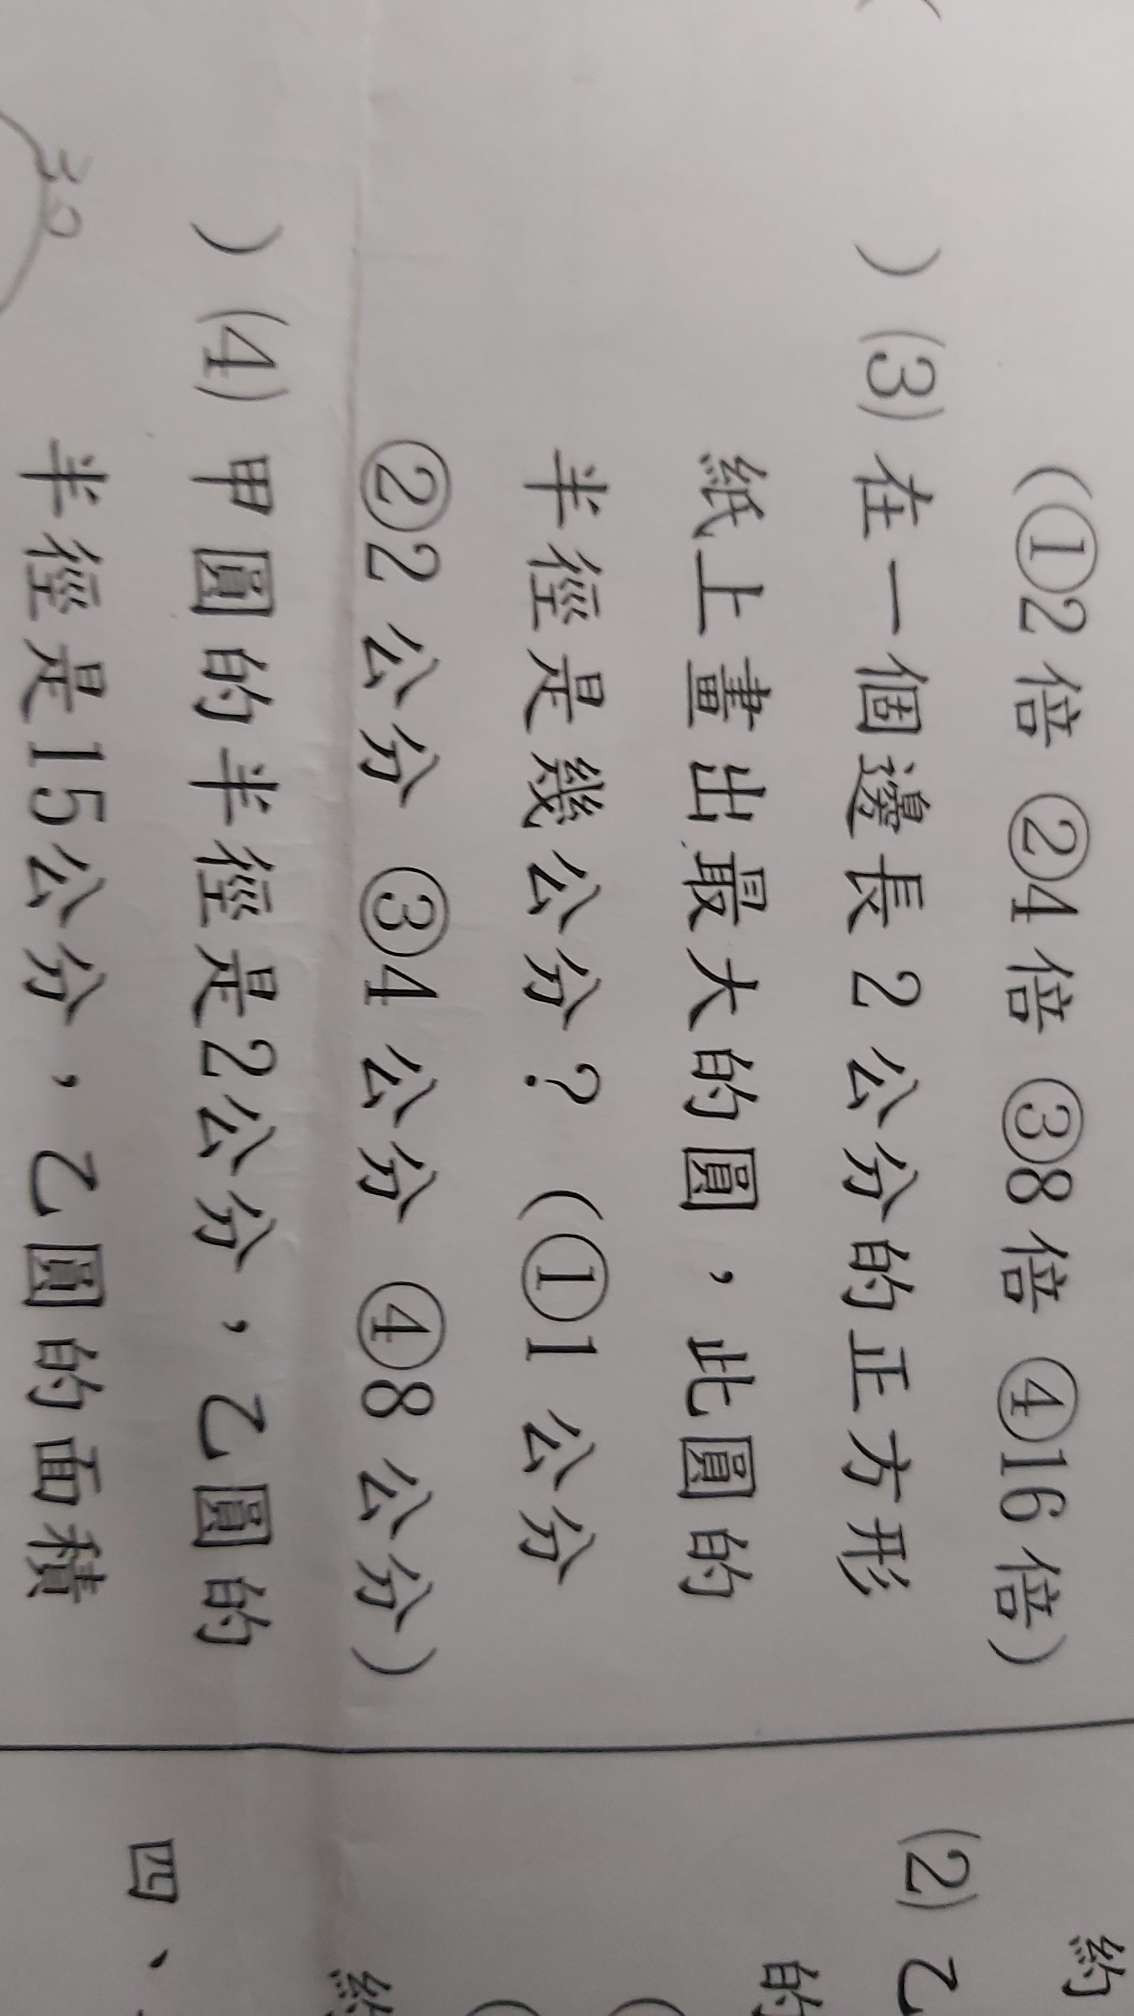 (①2 倍 ②4 倍 ③8 倍 ④16 倍)
) (3) 在一個邊長 2 公分的正方形
紙上畫出最大的圓，此圓的
半徑是幾公分？ (①1 公分
②2 公分 ③4 公分 ④8 公分)
) (4) 甲圓的半徑是2公分，乙圓的
半徑是15公分，乙圓的面積
32
約
(2) 乙
的
四、